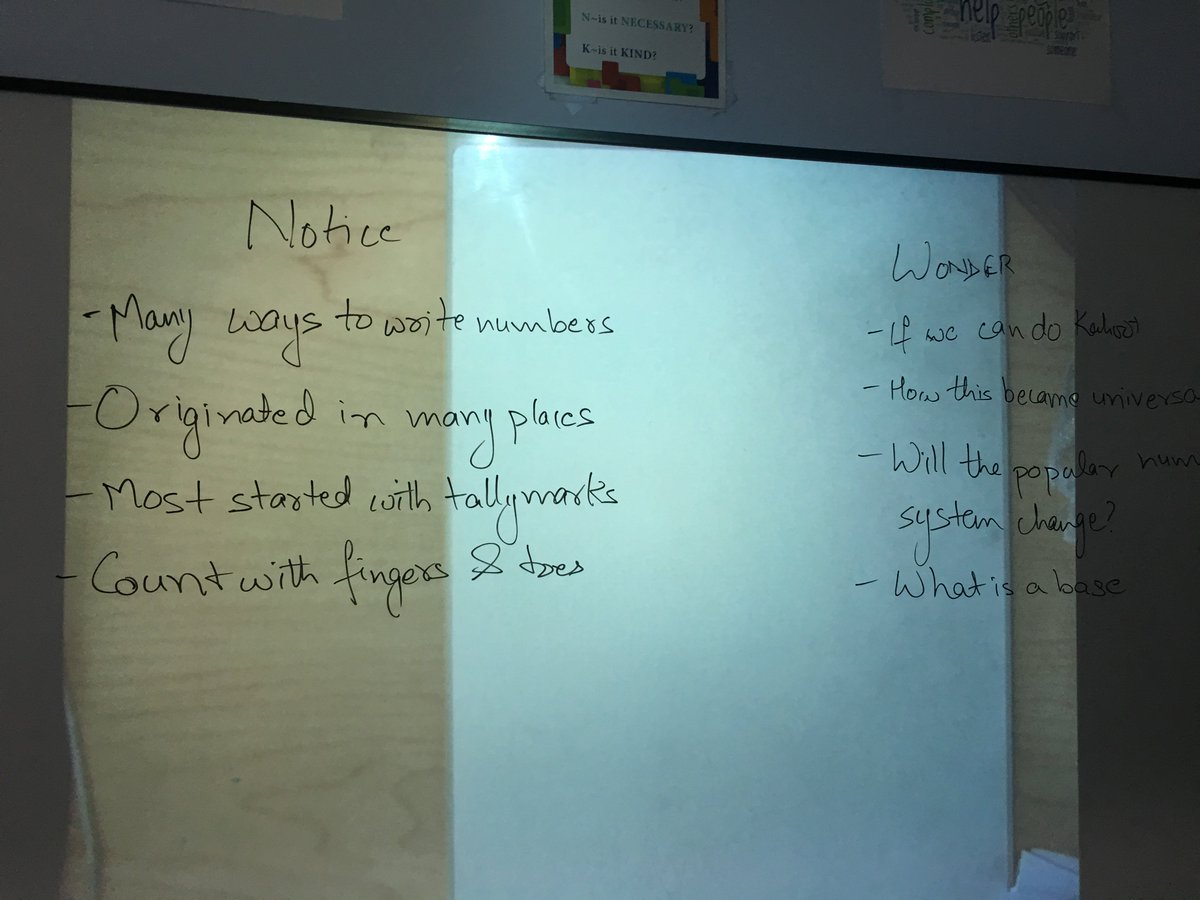 N~is it NECESSARY?
K~is it KIND?
help people
someone
Notice
- Many ways to write numbers
- Originated in many places
- Most started with tallymarks
- Count with fingers & toes
WONDER
- If we can do Kahoot
- How this became universa
- Will the popular num
system change?
- What is a base